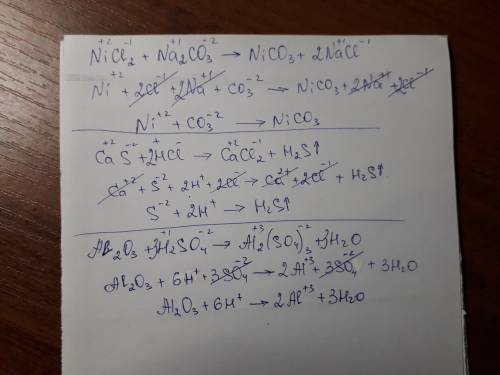 Ni⁺²Cl₂⁻¹ + Na₂⁺¹CO₃⁻² → NiCO₃ + 2Na⁺¹Cl⁻¹
Ni⁺² + 2Cl⁻¹ + 2Na⁺¹ + CO₃⁻² → NiCO₃ + 2Na⁺¹ + 2Cl⁻¹
Ni⁺² + CO₃⁻² → NiCO₃
Ca⁺²S⁻² + 2H⁺Cl⁻ → Ca⁺²Cl₂⁻¹ + H₂S↑
Ca⁺² + S⁻² + 2H⁺ + 2Cl⁻ → Ca²⁺ + 2Cl⁻¹ + H₂S↑
S⁻² + 2H⁺ → H₂S↑
Al₂O₃ + 3H₂⁺¹SO₄⁻² → Al₂⁺³(SO₄)₃⁻² + 3H₂O
Al₂O₃ + 6H⁺ + 3SO₄⁻² → 2Al⁺³ + 3SO₄⁻² + 3H₂O
Al₂O₃ + 6H⁺ → 2Al⁺³ + 3H₂O